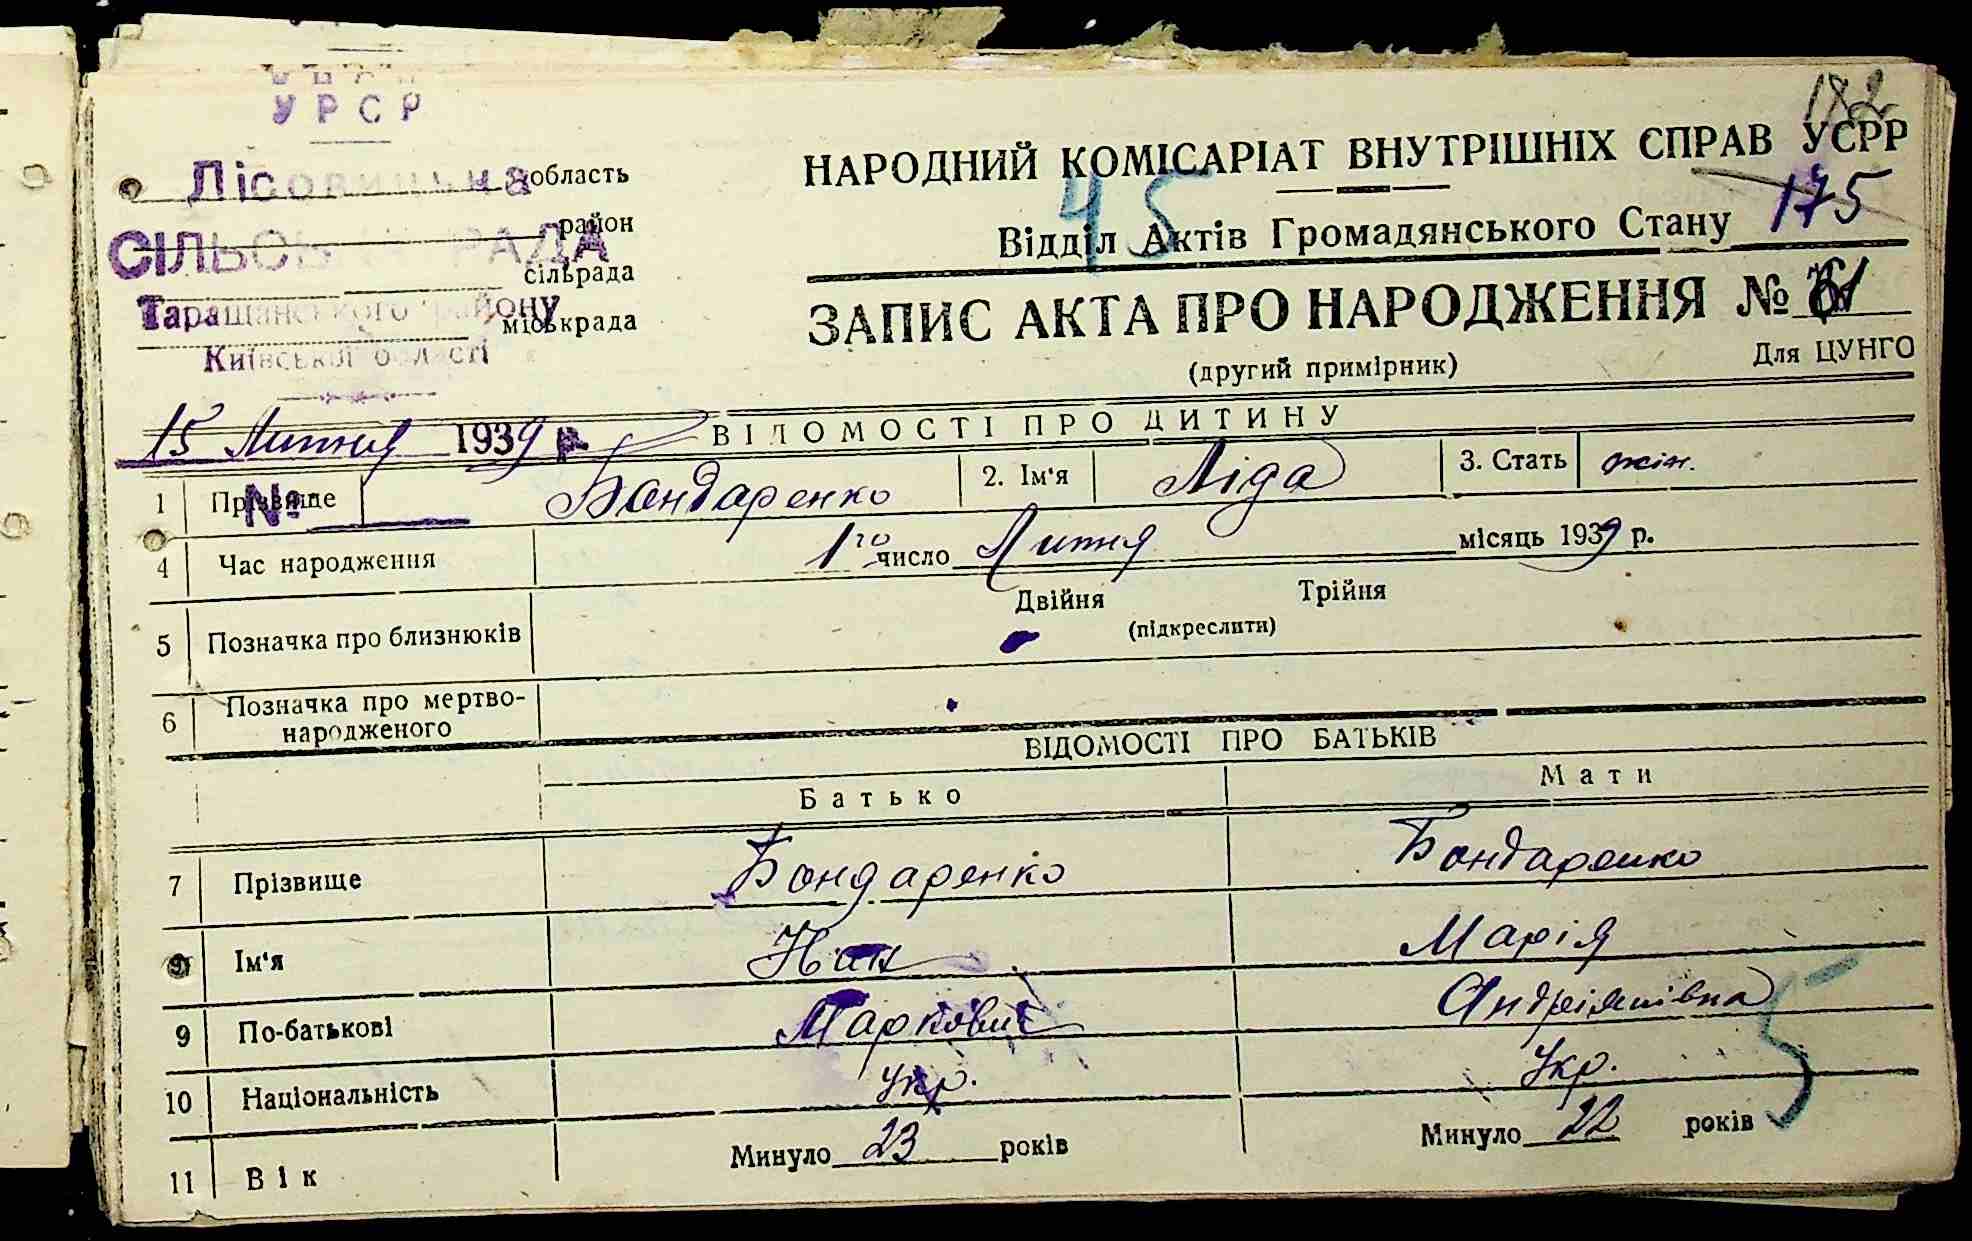 УРСР
182
Лісовицька область
НАРОДНИЙ КОМІСАРІАТ ВНУТРІШНІХ СПРАВ УСРР
район
45
175
СІЛЬСЬКА РАДА
Відділ Актів Громадянського Стану
сільрада
Таращанського району
міськрада
ЗАПИС АКТА ПРО НАРОДЖЕННЯ №
Київської області
(другий примірник)
Для ЦУНГО
15 Липня 1939 р.
ВІДОМОСТІ ПРО ДИТИНУ
№
1 Прізвище Бондаренко 2. Ім'я Ліда 3. Стать жін.
4 Час народження 1го число Липня місяць 1939 р.
5 Позначка про близнюків Двійня Трійня
(підкреслити)
6 Позначка про мертво-
народженого
ВІДОМОСТІ ПРО БАТЬКІВ
Батько Мати
7 Прізвище Бондаренко Бондаренко
Ім'я Марія
9 По-батькові Маркович Андріянівна
5
10 Національність Укр. Укр.
11 Вік Минуло 23 років Минуло 22 років